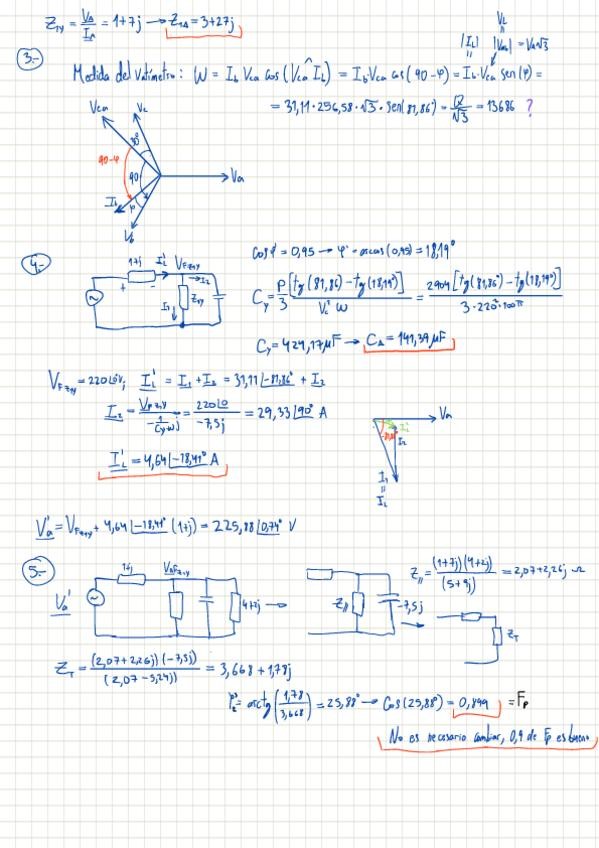 Z_TY = V_a/I_a = 1+7j → Z_TΔ = 3+27j
3.-
V_L
|I_L| |V_ca| = V_a√3
Medida del Vatímetro: W = I_b V_ca cos(V_ca^I_b) = I_b·V_ca cos(90-φ) = I_b·V_ca sen(φ) =
= 31,11·256,58·√3·sen(81,86°) = √2/√3 = 13686 ?
V_ca V_c
30°
90-φ
90
V_a
I_b φ
V_b
4.-
1+j I_L' V_FZTY
I_2
+ -
I_1 Z_TY
Cosφ' = 0,95 → φ' = arcos(0,95) = 18,19°
C_Y = P/3 [tg(81,86) - tg(18,19°)] / V_c² W = 2904 [tg(81,86°) - tg(18,19°)] / 3·220²·100π
C_Y = 424,17μF → C_Δ = 141,39μF
V_FZTY = 220∠0°V; I_L' = I_1+I_2 = 31,11∠-81,86° + I_2
I_2 = V_FZTY / -1/(C_Y w)j = 220∠0 / -7,5j = 29,33∠90° A
I_L' = 4,64∠-18,41° A
V_a
I_2
I_1
=
I_L
V_a' = V_FZTY + 4,64∠-18,41° (1+j) = 225,88∠0,74° V
5.-
1+j V_aFZTY
V_a'
4+2j →
Z_// -7,5j
→
Z_T
Z_// = (1+7j)(4+2j) / (5+9j) = 2,07+2,26j Ω
Z_T = (2,07+2,26j)(-7,5j) / (2,07-5,24j) = 3,668+1,78j
= arctg(1,78/3,668) = 25,88° → Cos(25,88°) = 0,899 = F_P
No es necesario cambiar, 0,9 de F_P es bueno